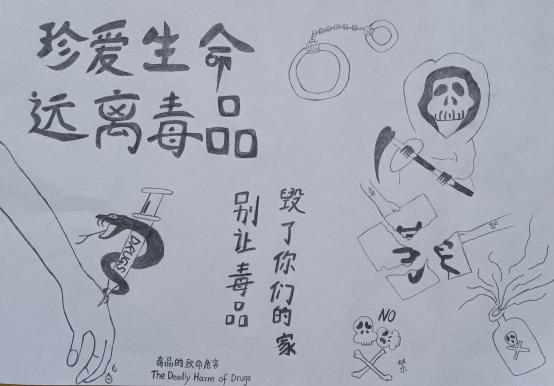 珍爱生命
远离毒品
DRUGS
别让毒品
毁了你们的家
NO
禁
毒品的致命危害
The Deadly Harm of Drugs